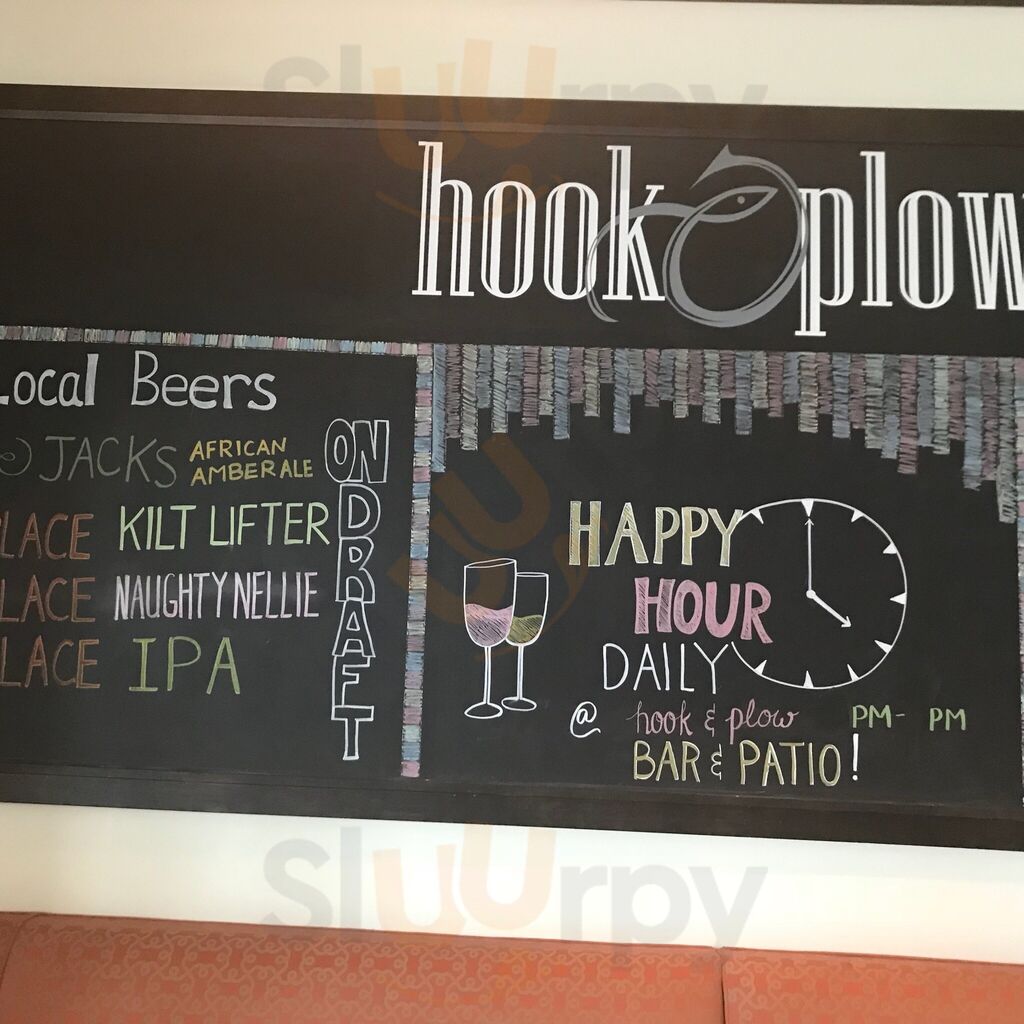 sluurpy
hook plow
Local Beers
JACKS AFRICAN AMBER ALE
LACE KILT LIFTER
LACE NAUGHTY NELLIE
LACE IPA
ON DRAFT
HAPPY
HOUR
DAILY
@ hook & plow PM- PM
BAR & PATIO!
sluurpy